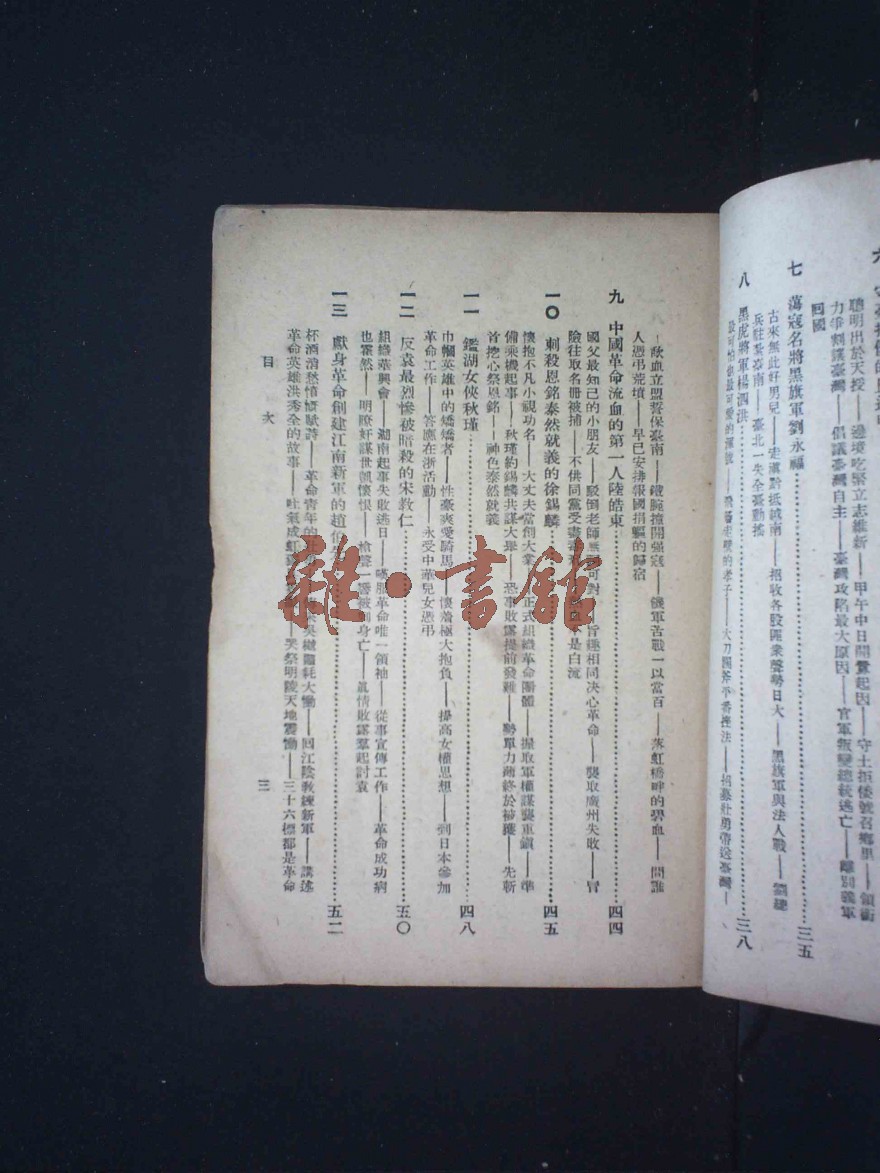 七 蕩寇名將黑旗軍劉永福……三五
古來無此好男兒——
兵駐紮臺南——臺北一失全臺動搖
招收各股匪衆聲勢日大——黑旗軍與法人戰——劉
八 黑虎將軍楊泗洪……三八
聰明出於天授——過境吃緊立志維新——甲午中日開釁起因——守土拒倭號召鄉里——領銜
力爭割讓臺灣——倡議臺灣自主——臺灣攻陷最大原因——官軍叛變總統逃亡——離別義軍
回國
歃血立盟誓保臺南——鐵腕撞開強寇——饑軍苦戰一以當百——落虹橋畔的碧血——問誰
人憑弔荒墳——早已安排報國捐軀的歸宿
九 中國革命流血的第一人陸皓東……四四
國父最知己的小朋友——駁倒老師無可對——旨趣相同决心革命——襲取廣州失敗——冒
險往取名冊被捕——不供同黨受盡毒——是白流
一〇 刺殺恩銘泰然就義的徐錫麟……四五
懷抱不凡小視功名——大丈夫當創大業——正式組織革命團體——握取軍權謀襲重鎮——準
備乘機起事——秋瑾約錫麟共謀大舉——恐事敗露提前發難——勢單力薄終於被獲——先斬
首挖心祭恩銘——神色泰然就義
一一 鑑湖女俠秋瑾……四八
巾幗英雄中的矯矯者——性豪爽愛騎馬——懷着極大抱負——提高女權思想——到日本參加
革命工作——答應在浙活動——永受中華兒女憑弔
一二 反袁最烈慘被暗殺的宋教仁……五〇
組織華興會——湖南起事失敗逃日——嘆服革命唯一領袖——從事宣傳工作——革命成功病
也霍然——明瞭奸謀世凱懷恨——槍聲一響被刺身亡——眞情敗露羣起討袁
一三 獻身革命創建江南新軍的趙……五二
杯酒澆愁慷慨賦詩——革命青年的——噩耗大慟——回江陰教練新軍——講述
革命英雄洪秀全的故事——吐氣成虹——哭祭明陵天地震慟——三十六標都是革命
目次
三
雜·書館